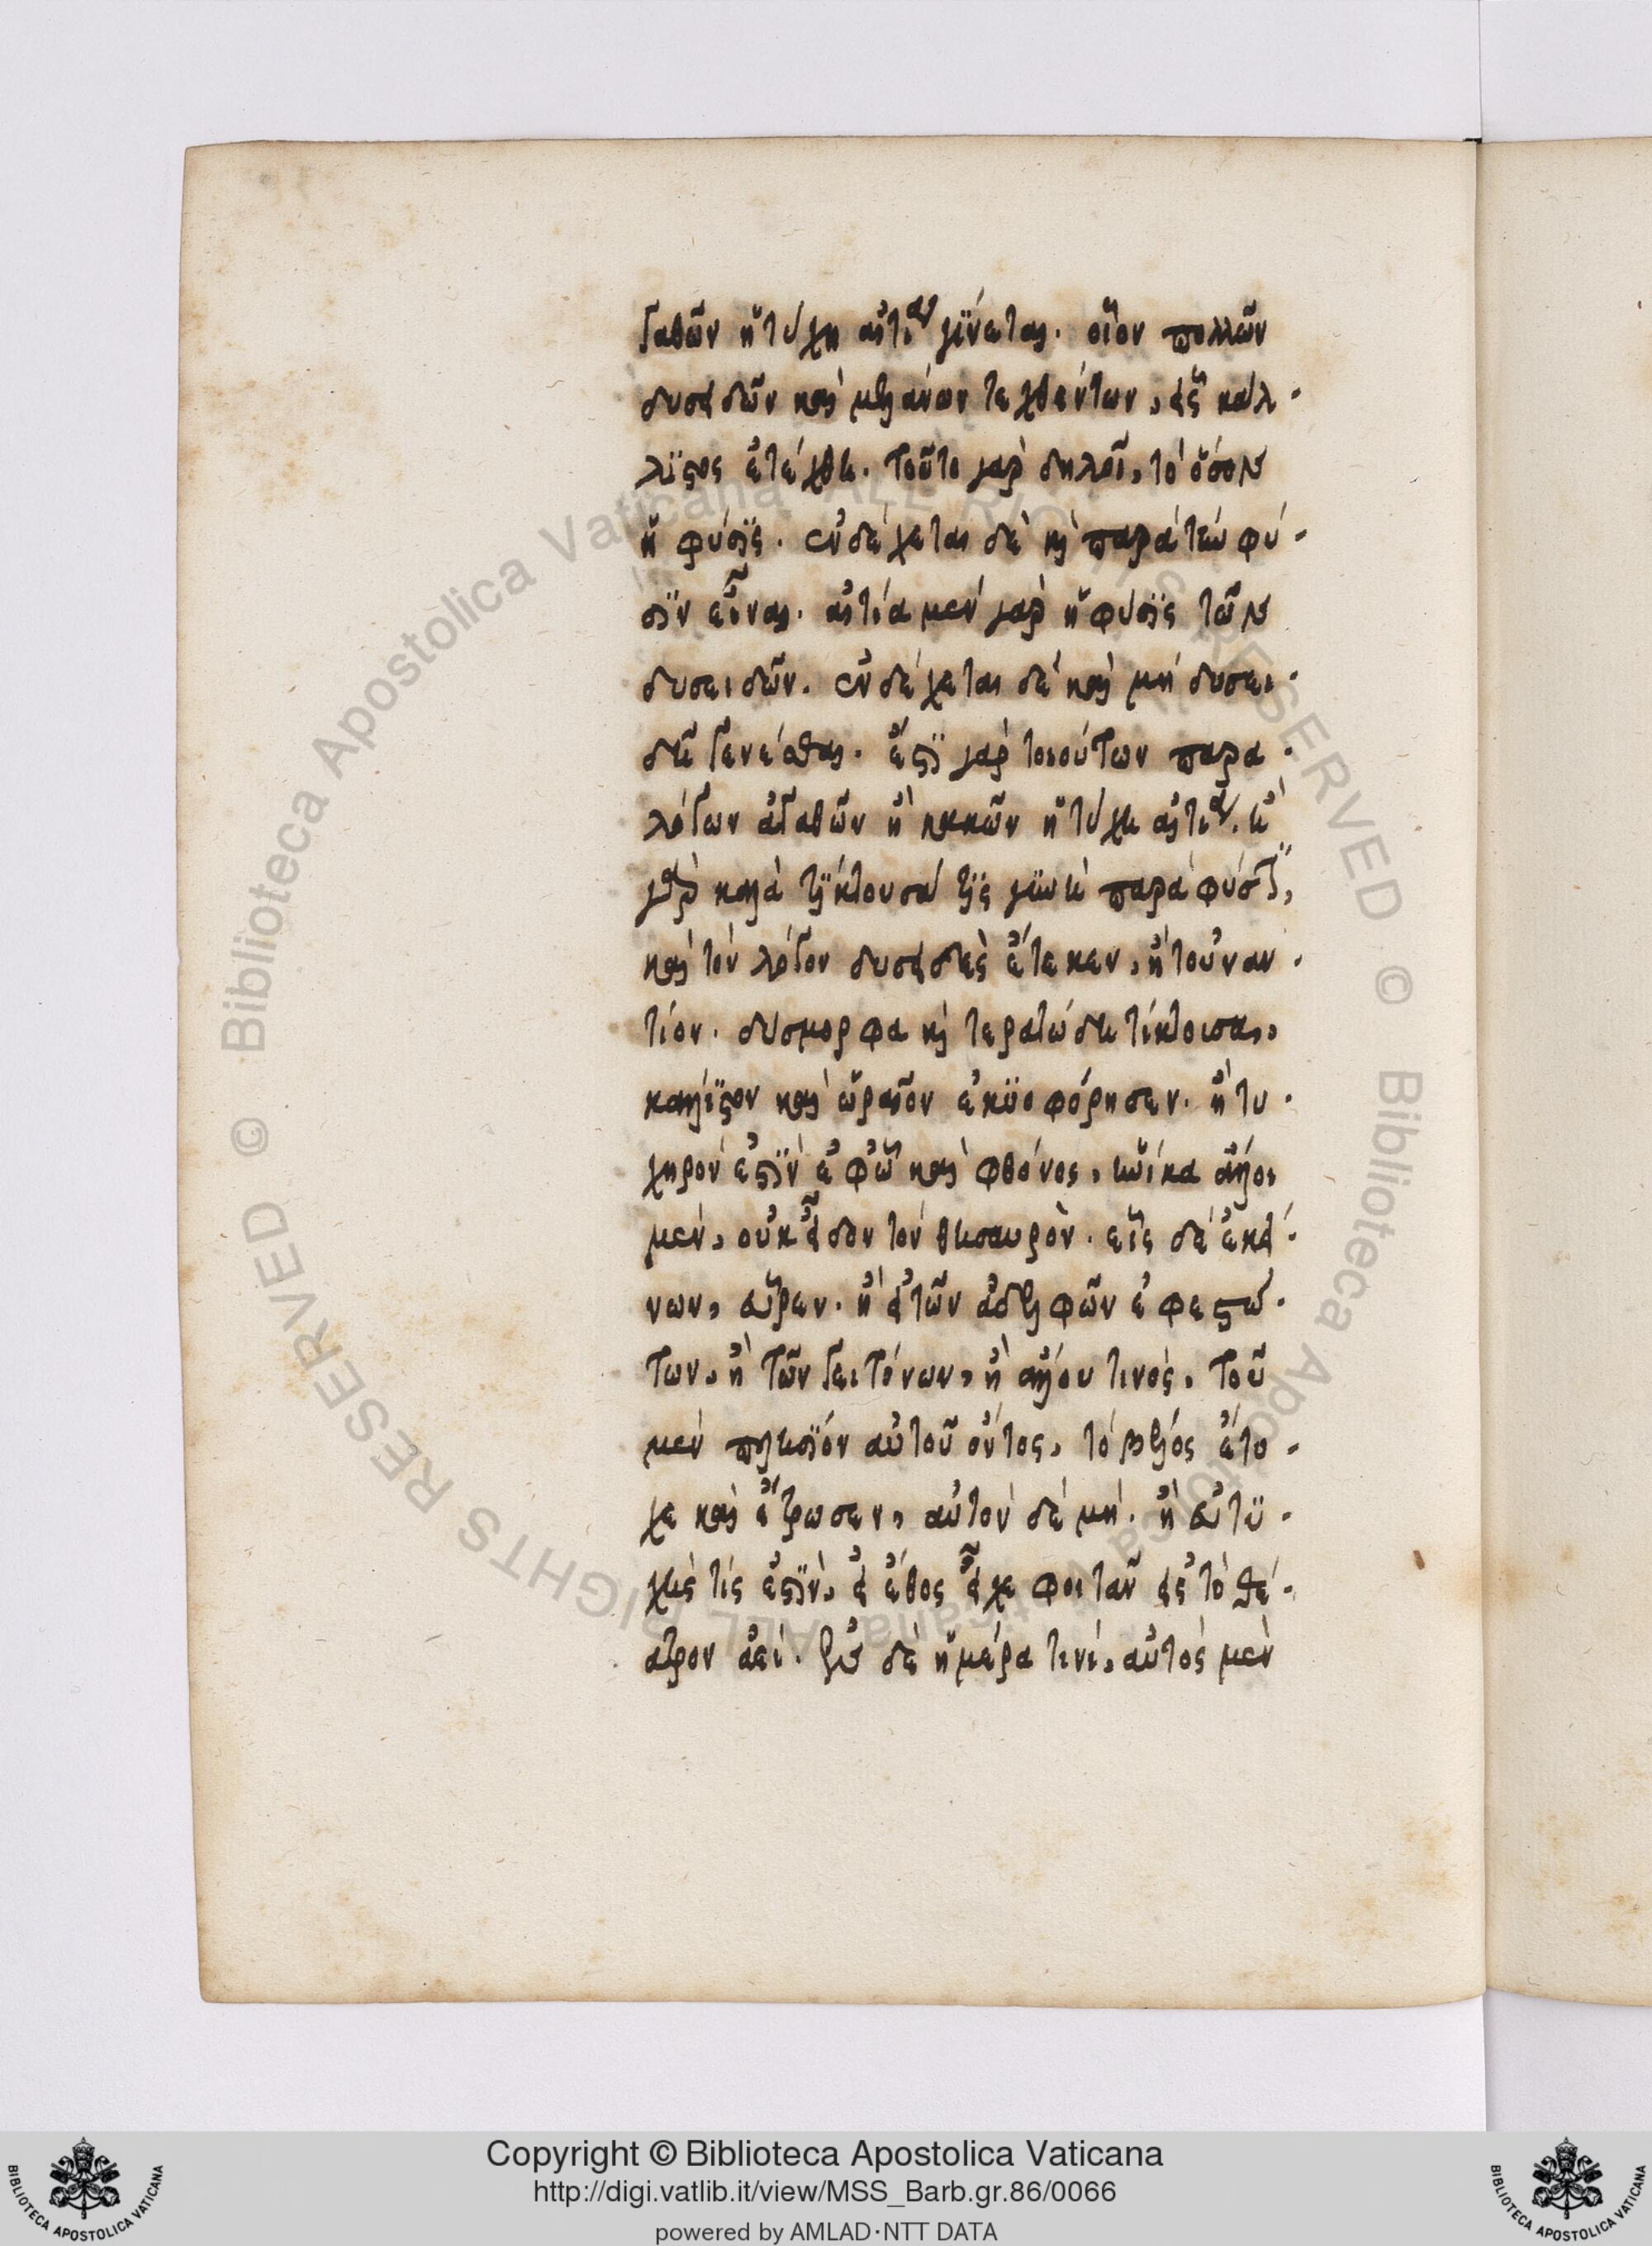 γαθῶν ἡ τύχη αἰτία γίνεται. οἷον πολλῶν
δυσειδῶν καὶ μελάνων τεχθέντων, εἷς κάλ-
λιστος ἐτέχθη. τοῦτο γὰρ δηλοῖ, τὸ ὅσον
ἡ φύσις. ἐνδέχεται δὲ καὶ παρὰ τὴν φύ-
σιν εἶναι. αἰτία μὲν γὰρ ἡ φύσις τῶν
δυσειδῶν. ἐνδέχεται δὲ καὶ μὴ δυσει-
δῆ γενέσθαι. ἔστι γὰρ τοιούτων παρα-
λόγων ἀγαθῶν ἢ κακῶν ἡ τύχη αἰτία. ἢ
γὰρ καλὰ τίκτουσά τις γυνὴ παρὰ φύσιν,
καὶ τὸν λόγον δυσειδὲς ἔτεκεν, ἢ τοὐναν-
τίον. δύσμορφα καὶ τερατώδη τίκτουσα,
κάλλιστον καὶ ὡραῖον ἐκυοφόρησεν. ἢ τυ-
χηρόν ἐστιν ἐφ' ᾧ καὶ φθόνος, ἡνίκα ἄλλοι
μὲν, οὐκ εἶδον τὸν θησαυρὸν. εἷς δὲ ἐκεί-
νων, εὗρεν. ἢ εἰ τῶν ἀδελφῶν ἐφεστώ-
των, ἢ τῶν γειτόνων, ἢ ἄλλου τινὸς, τοῦ
μὲν πλησίον αὐτοῦ ὄντος, τὸ βέλος ἔτυ-
χε καὶ ἔτρωσεν, αὐτὸν δὲ μή. ἢ εὐτυ-
χής τίς ἐστιν, εἰ ἔθος εἶχε φοιτᾶν εἰς τὸ θέ-
ατρον ἀεί. δὲ ἡμέρα τινί, αὐτὸς μὲν
Copyright © Biblioteca Apostolica Vaticana
http://digi.vatlib.it/view/MSS_Barb.gr.86/0066
powered by AMLAD·NTT DATA